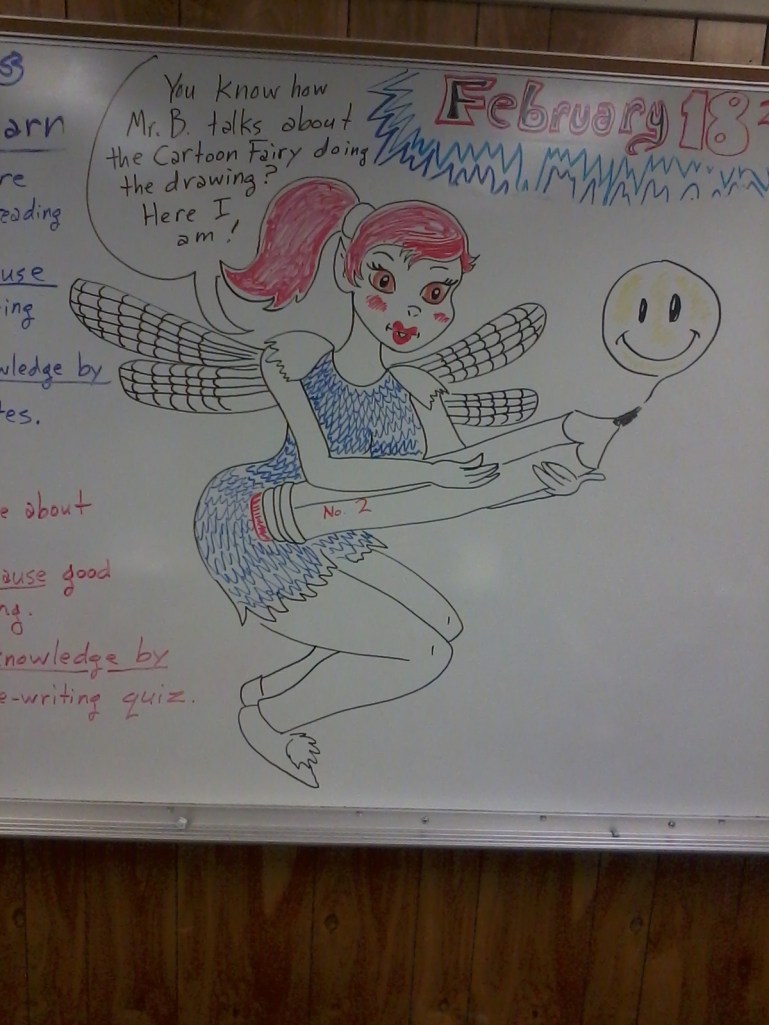 You know how
Mr. B. talks about
the Cartoon Fairy doing
the drawing?
Here I
am!
February 18
arn
re
eading
use
ing
wledge by
tes.
e about
ause good
ng.
nowledge by
e-writing quiz.
No. 2